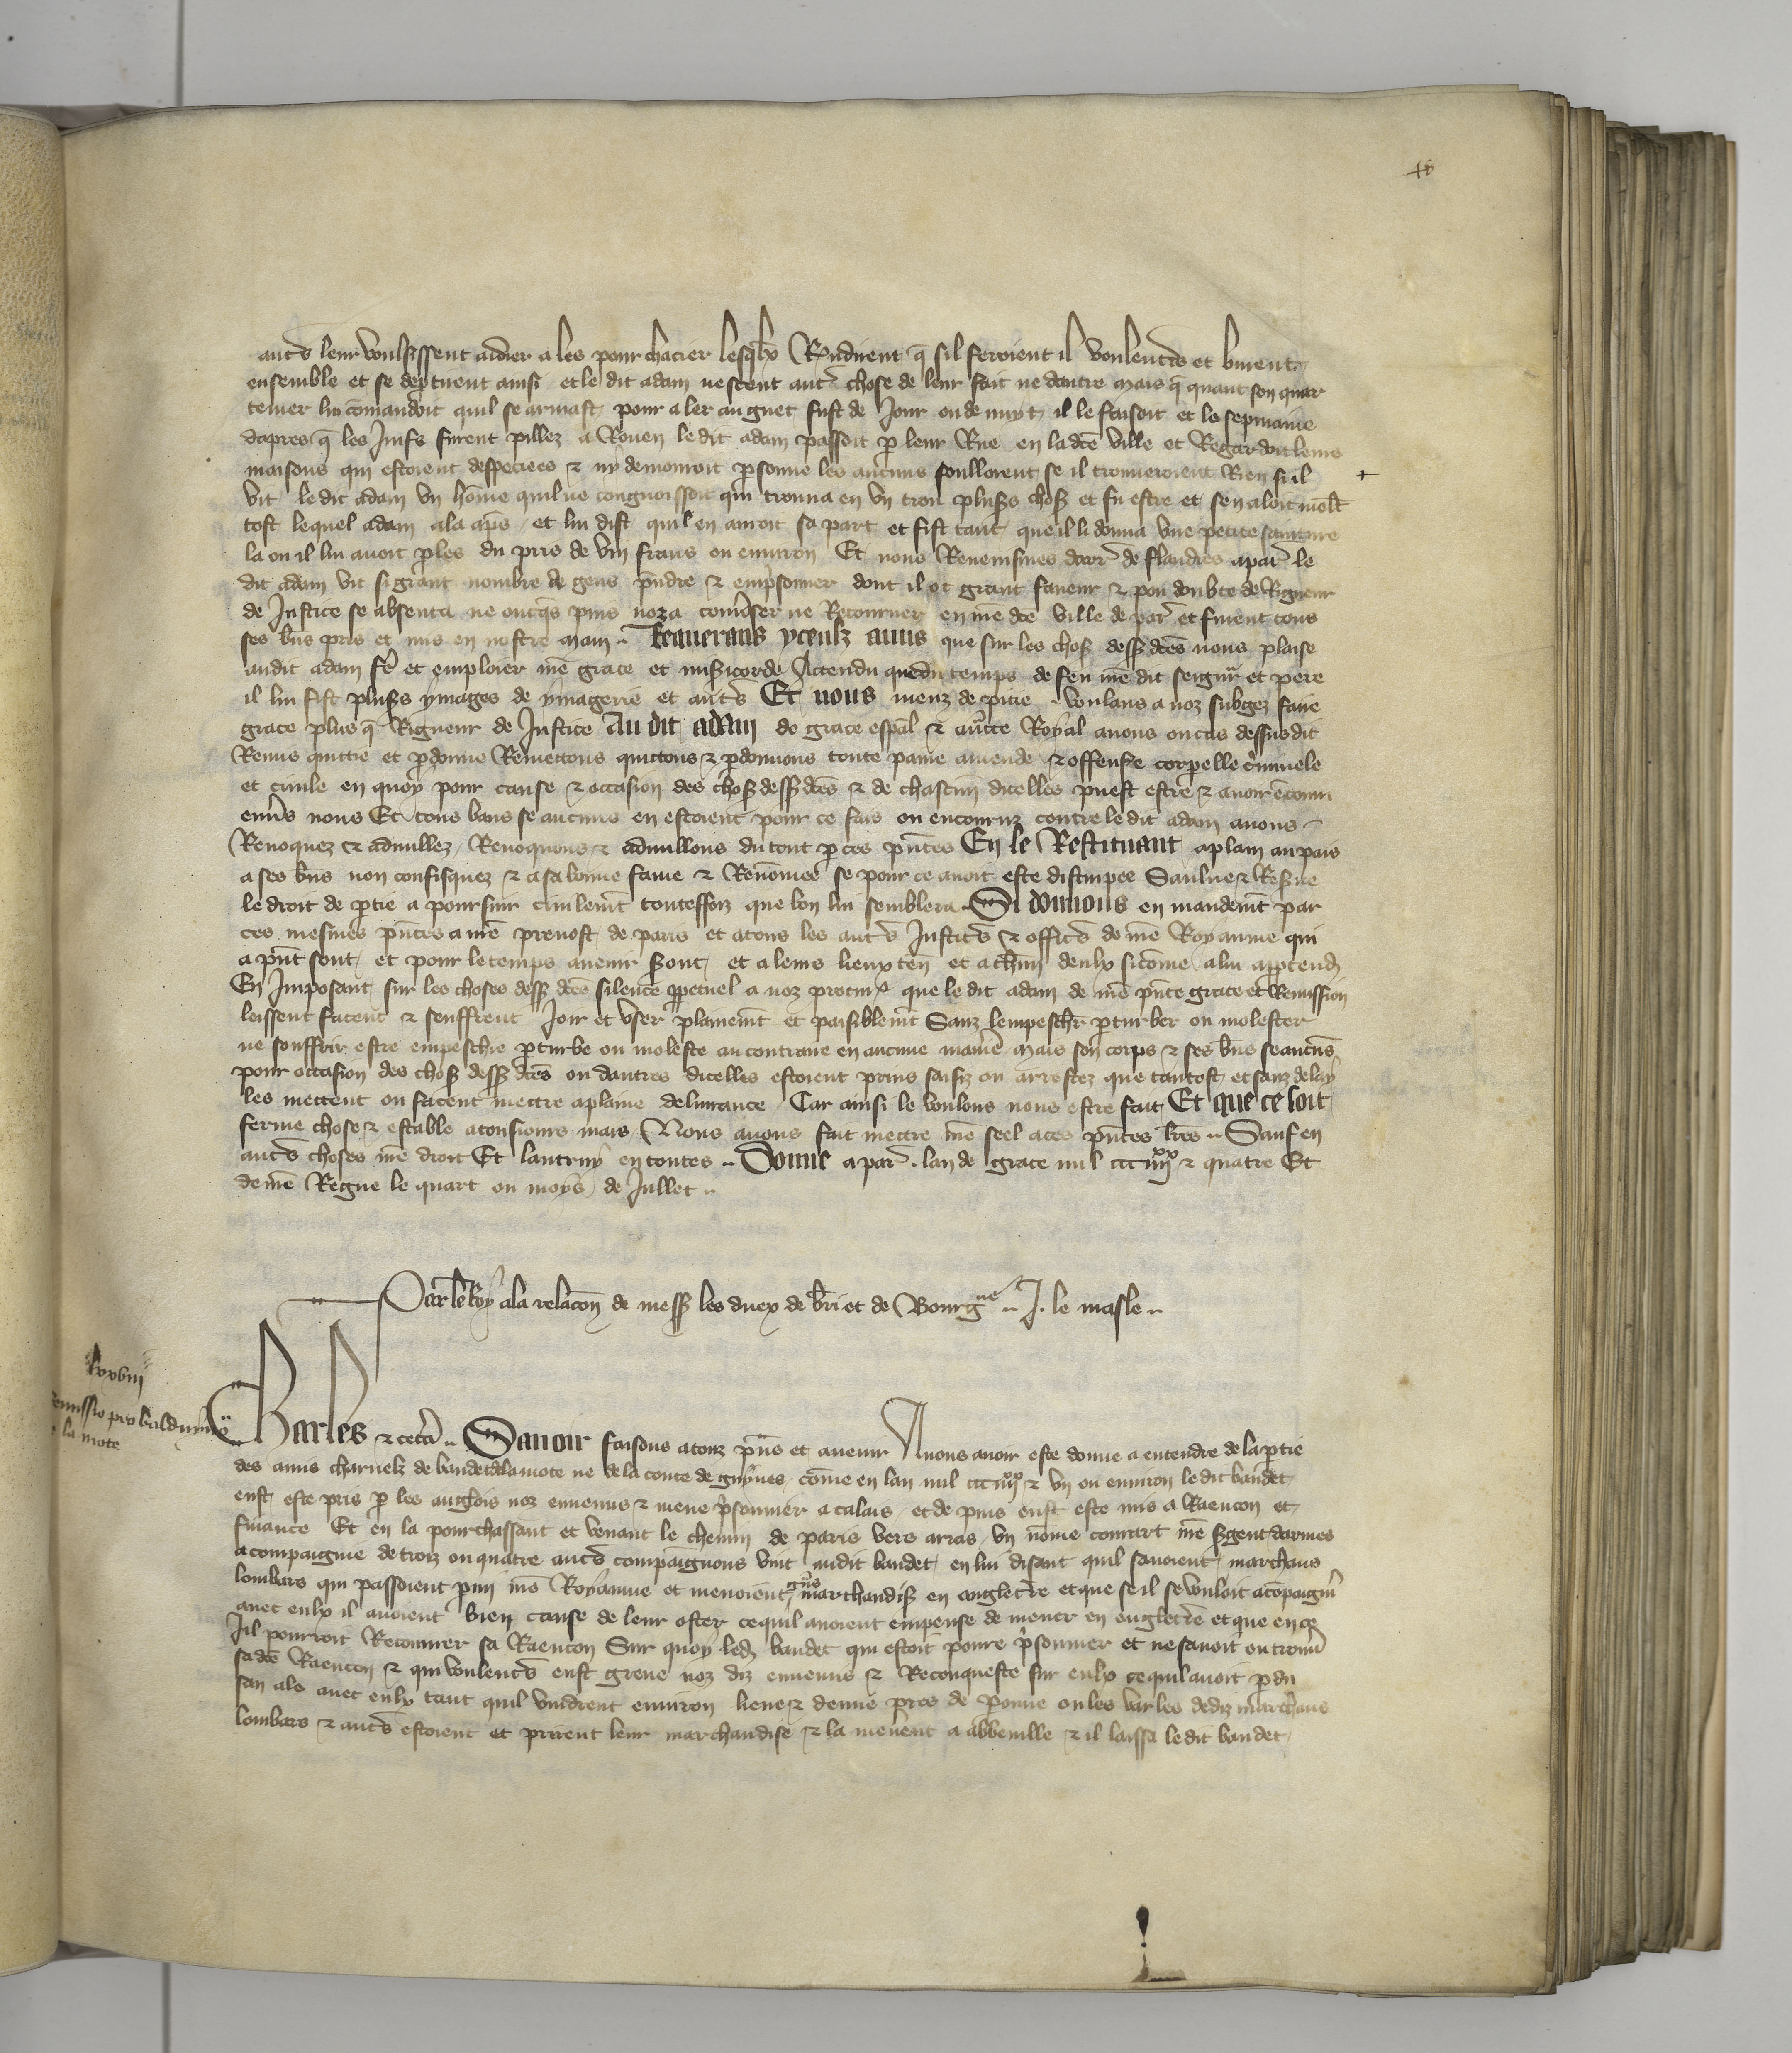 autres leur voulsissent aidier a les pour chacier lesqlx Rndirent q̃ sil feroient il voulentis et burent
ensemble et se deptirent ainsi et le dit adam ne scent autr̃ chose de leur fait ne dautre mais q̃ quant son quar
tenier lui cõmandoit quil se armast pour aler au guet fust de Jour ou de nuyt il le faisoit et la sepmaine
dapres q̃ les Juifs furent pillez a Rouen le dit adam passoit p leur Rue en la dicẽ ville et Regardoit leurs
maisons qui estoient despeciees & ny demouroit psonne les aucuns foulloient se il trouveroient Rien si il
vit le dit adam vn hõme quil ne congnoissoit qui trouva en vn trou plusrs chos et sen aloit molt
tost lequel adam ala aps et lui dist quil en auroit sa part et fist tant que il li donna vne petite sainture
la ou il lui avoit ples du pris de viii frans ou environ Et nous Revenismes darr̃ de flandres a par̃ le
dit adam vit si grant nombre de gens pndre & emprisonner dont il ot grant faveur & pou doubte de Rigueur
de Justice se absenta ne oncqs puis noza converser ne Retourner en nrẽ dcẽ ville de par̃ et furent tous
ses bñs pris et mis en nostre main .. Requerans yceulz amis que sur les chos dess dcẽs nous plaise
audit adam fẽ et emploier nrẽ grace et misericorde Attendu que du temps de feu nrẽ dit seigur̃ et pere
il lui fist plusrs ymages de ymagerie et autrs Et nous meuz de pitie voulans a noz subgez faire
grace plus q̃ Rigueur de Justice Au dit adam de grace espal & aucte Royal avons ou cas dessusdit
Remis quittie et pdonne Remettons quittons & pdonnons toute paine amende & offense corporelle criminele
et civile en quoy pour cause & occasion des chos dess dcẽs & de chascun dicelles puest estre & avoir ẽcouru
envs nous Et tous bans se aucuns en estoient pour ce fais ou encouruz contre le dit adam avons
Revoquez & adnullez Revoquons & adnullons du tout p ces pñtes En le Restituant aplain au pais
a ses bñs non confisquez & a sa bonne fame & Renõmee se pour ce avoit este disimpee Saulve & Reserve
le droit de ptie a poursuir civilemt toutesfoiz que bon lui semblera Si donnons en mandemt par
ces mesmes pñtes a nrẽ prevost de paris et a tous les autrs Justicrs & officrs de nrẽ Royaume qui
a pñt sont et pour le temps avenir seront et a leurs lieux teñ et a chũn deulx sicõme a lui apptendra
En Imposant sur les choses dess dcẽs silence ppetuel a noz procur̃ que le dit adam de nrẽ pñte grace et Remission
leissent facent & seuffrent Joir et vser plainemt et paisiblemt Sanz lempeschr pturber ou molester
ne souffrir estre empeschie pturbe ou moleste au contraire en aucune maniẽ mais son corps & ses bñs se aucũs
pour occasion des chos dess dcẽs ou dautres dicelles estoient prins saisiz ou arrestez que tantost et sanz delay
les mettent ou facent mettre aplaine delivrance Car ainsi le voulons nous estre fait Et que ce soit
ferme chose & estable atousiours mais Nous avons fait mettre nrẽ seel aces pñtes lrẽs .. Sauf en
autrs choses nrẽ droit Et lautruy en toutes .. Donne a par̃ . lan de grace mil ccc iiii xx & quatre Et
de nrẽ Regne le quart ou moys de Jullet ..
Par le Roy ala relacõn de mess les ducx de brri et de Bourgne .. J. le masle ..
lxxviii
Remissio pro balduyno
de la mote
Charles & cetera .. Savoir faisons a touz pñs et avenir A nous avoir este donne a entendre de la ptie
des amis charnelz de baudet de la mote ne de la conte de guynes cõme en lan mil ccc iiii xx & vn ou environ le dit baudet
eust este pris p les anglois noz ennemis & mene prisonnier a calais et de puis eust este mis a Raencon et
finance Et en la pourchassant et venant le chemin de paris vers arras vn nõme conrart nrẽ sergent darmes
acompaignie de troiz ou quatre autrs compaignons vint audit baudet en lui disant quil savoient marchans
lombars qui passoient pmi nrẽ Royaume et menoient grñs marchandis en engleterre et que se il se vouloit acõpaignr
avec eulx il avoient bien cause de leur oster ce quil avoient empense de mener en engleterre et que en ce
Il pourroit Recouvrer sa Raencon Sur quoy led baudet qui estoit povre prisonnier et ne savoit ou trouvr
sa dcẽ Raencon & qui voulentrs eust greve noz diz ennemis & Reconqueste sur eulx ce quil avoit pdu
sen ala avec eulx tant quil vindrent environ lieue & demie pres de peronne ou les varles dediz marchans
lombars & autrs estoient et prirent leur marchandise & la menerent a abbeville & il laissa ledit baudet